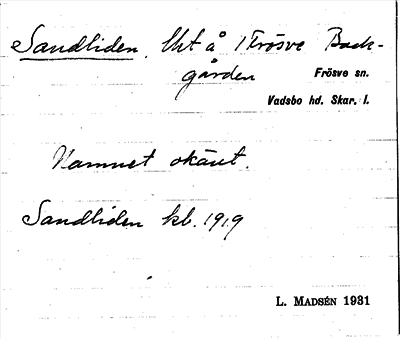 Sandliden. Lht å 1 Frösve Back-
gården Frösve sn.
Vadsbo hd. Skar. l.
Namnet okänt.
Sandliden kb. 1919
L. MADSÉN 1931